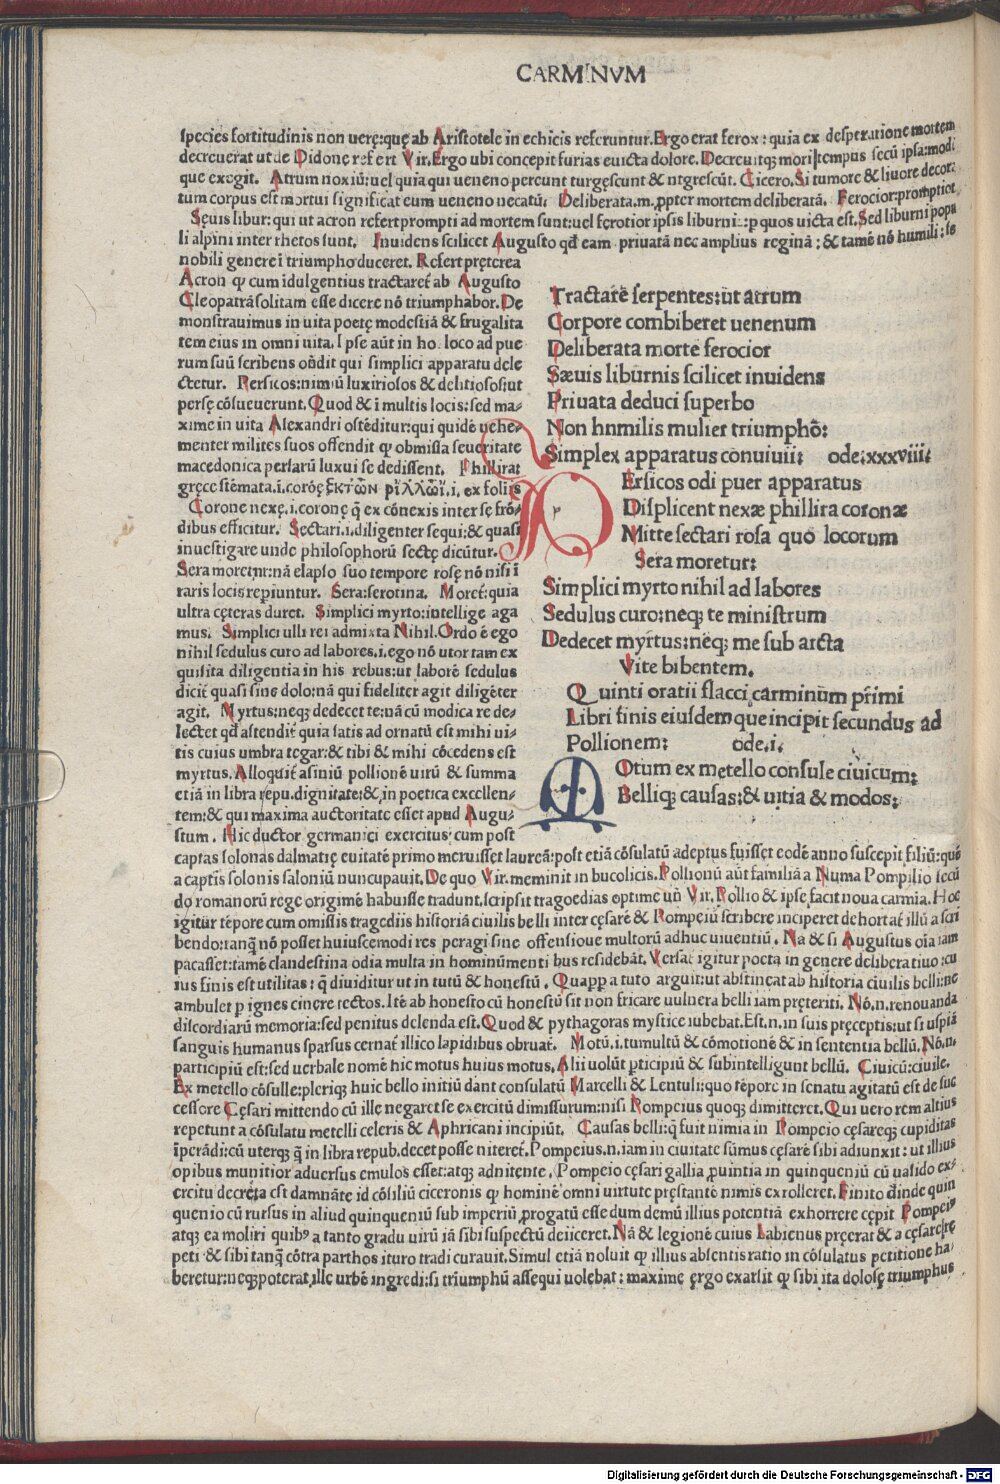 CARMINVM
species fortitudinis non uerę:quę ab Aristotele in echicis referuntur. Ergo erat ferox: quia ex desperatione mortem
decreuerat ut de Didone refert Vir. Ergo ubi concepit furias euicta dolore. Decreuitqꝫ mori tempus secū ipsa: modū
que exegit. Atrum noxiū: uel quia qui ueneno pereunt turgescunt & nigrescūt. Cicero. Si tumore & liuore decora
tum corpus est mortui significat eum ueneno necatū. Deliberata.m. ꝓpter mortem deliberatā. Ferocior: promptior
Sęuis libur: qui ut acron refert prompti ad mortem sunt: uel ferotior ipsis liburnis: p quos uicta est. Sed liburni popu
li alpini inter rhetos sunt. Inuidens scilicet Augusto qđ eam priuatā nec amplius reginā: & tamē nō humili: se
nobili genere ī triumpho duceret. Refert pręterea
Acron qꝫ cum īdulgentius tractareť ab Augusto
Cleopatrā solitam esse dicere nō triumphabor. De
monstrauimus in uita poetę modestiā & frugalita
tem eius in omni uita. Ipse aūt in ho. loco ad pue
rum suū scribens oñdit qui simplici apparatu dele
ctetur. Persicos: nimiū luxiriosos & delitiosos: ut
persę cōsueuerunt. Quod & ī multis locis: sed ma-
xime in uita Alexandri ostēditur: qui quidē uehe-
menter milites suos offendit qꝫ obmissa seueritate
macedonica persarū luxui se dedissent. Phillirat
gręce stēmata.i. coróę ξκτῶν φίλλωῖ.i. ex foliis
Corone nexę.i. coronę q̄ ex cōnexis inter se frō-
dibus efficitur. Sectari.i. diligenter sequi: & quasi
inuestigare unde philosophorū sectę dicūtur.
Sera moretur: nā elapso suo tempore rosę nō nisi ī
raris locis repiuntur. Sera: serotina. Moreť: quia
ultra cęteras duret. Simplici myrto: intellige aga
mus. Simplici ulli rei admixta Nihil. Ordo ē ego
nihil sedulus curo ad labores.i. ego nō utor tam ex
quisita diligentia in his rebus: ut laborē sedulus
diciť quasi sine dolo: nā qui fideliter agit diligēter
agit. Myrtus: neqꝫ dedecet te: nā cū modica re de-
lectet qđ astendit quia satis ad ornatū est mihi ui-
tis cuius umbra tegar: & tibi & mihi cōcedens est
myrtus. Alloquiť asiniū pollionē uirū & summa
etiā in libra repu. dignitate: & in poetica excellen-
tem: & qui maxima auctoritate esset apud Augu-
stum. Hic ductor germanici exercitus: cum post
Tractare serpentes: ut atrum
Corpore combiberet uenenum
Deliberata morte ferocior
Sæuis liburnis scilicet inuidens
Priuata deduci superbo
Non hnmilis mulier triumphō:
Simplex apparatus conuiuii: ode: xxxviii.
PErsicos odi puer apparatus
DIsplicent nexæ phillira coronæ
Mitte sectari rosa quo locorum
Sera moretur:
Simplici myrto nihil ad labores
Sedulus curo: neqꝫ te ministrum
Dedecet myrtus: neqꝫ me sub arcta
Vite bibentem.
Quinti oratii flacci carminum prīmi
Libri finis eiusdem que incipit secundus ad
Pollionem: ode.i.
MOtum ex metello consule ciuicum:
Belliqꝫ causas: & uitia & modos:
captas solonas dalmatię euitatē primo meruisset laureā: post etiā cōsulatū adeptus fuisset eodē anno suscepit filiū: quē
a captis solonis saloniū nuncupauit. De quo Vir. meminit in bucolicis. Pollionū aūt familiā a Numa Pompilio secū
do romanorū rege origimē habuisse tradunt. scripsit tragoedias optime uñ Vir. Pollio & ipse facit noua carmia. Hoc
igitur tēpore cum omissis tragediis historiā ciuilis belli inter cęsarē & Pompeiū scribere inciperet dehortať illū a scri
bendo: tanqꝫ nō posset huiuscemodi res peragi sine offensioue multorū adhuc uiuentiū. Na & si Augustus oīa iam
pacasset: tamē clandestina odia multa in hominūmenti bus residebāt. Versať igitur poeta in genere deliberatiuo: cu
ius finis est utilitas: q̄ diuiditur ut in tutū & honestū. Quapp a tuto arguit: ut abstineat ab historia ciuilis belli: ne
ambulet p ignes cinere tectos. Itē ab honesto cū honestū sit non fricare uulnera belli iam pręteriti. Nō.n. renouanda
discordiarū memoria: sed penitus delenda est. Quod & pythagoras mystice iubebat. Est.n. in suis pręceptis: ut si uspiā
sanguis humanus sparsus cernať illico lapidibus obruať. Motū.i. tumultū & cōmotionē & in sententia bellū. Nō.n.
participiū est: sed uerbale nomē hic motus huius motus. Alii uolūt pticipiū & subintelligunt bellū. Ciuicū: ciuile.
Ex metello cōsulle: pleriqꝫ huic bello initiū dant consulatū Marcelli & Lentuli: quo tēpore in senatu agitatū est de suc
cessore Cęsari mittendo cū ille negaret se exercitū dimissurum: nisi Pompeius quoqꝫ dimitteret. Qui uero rem altius
repetunt a cōsulatu metelli celeris & Aphricani incipiūt. Causas belli: q̄ fuit nimia in Pompeio cęsareqꝫ cupiditas
īperādi: cū uterqꝫ q̄ in libra repub. decet posse niteret. Pompeius.n. iam in ciuitate sūmus cęsarē sibi adiunxit: ut illius
opibus munitior aduersus emulos esset: atqꝫ adnitente. Pompeio cęsari gallia ꝓuintia in quinqueniū cū ualido ex-
ercitu decręta est damnāte id cōsiliū ciceronis qꝫ hominē omni uirtute pręstantē nimis exrolleret. Finito đinde quin
quenio cū rursus in aliud quinqueniū sub imperiū ꝓrogatū esse dum demū illius potentiā exhorrere cępit Pompeiꝰ
atqꝫ ea moliri quibꝰ a tanto gradu uirū iā sibi suspectū deiiceret. Nā & legionē cuius Labienus pręerat & a cęsare re
peti & sibi tanqꝫ cōtra parthos ituro tradi curauit. Simul etiā noluit qꝫ illius absentis ratio in cōsulatus petitione ha-
beretur: neqꝫ poterat ille urbē ingredi: si triumphū assequi uolebat: maxime ergo exarsit qꝫ sibi ita dolosę triumphus
Digitalisierung gefördert durch die Deutsche Forschungsgemeinschaft - DFG